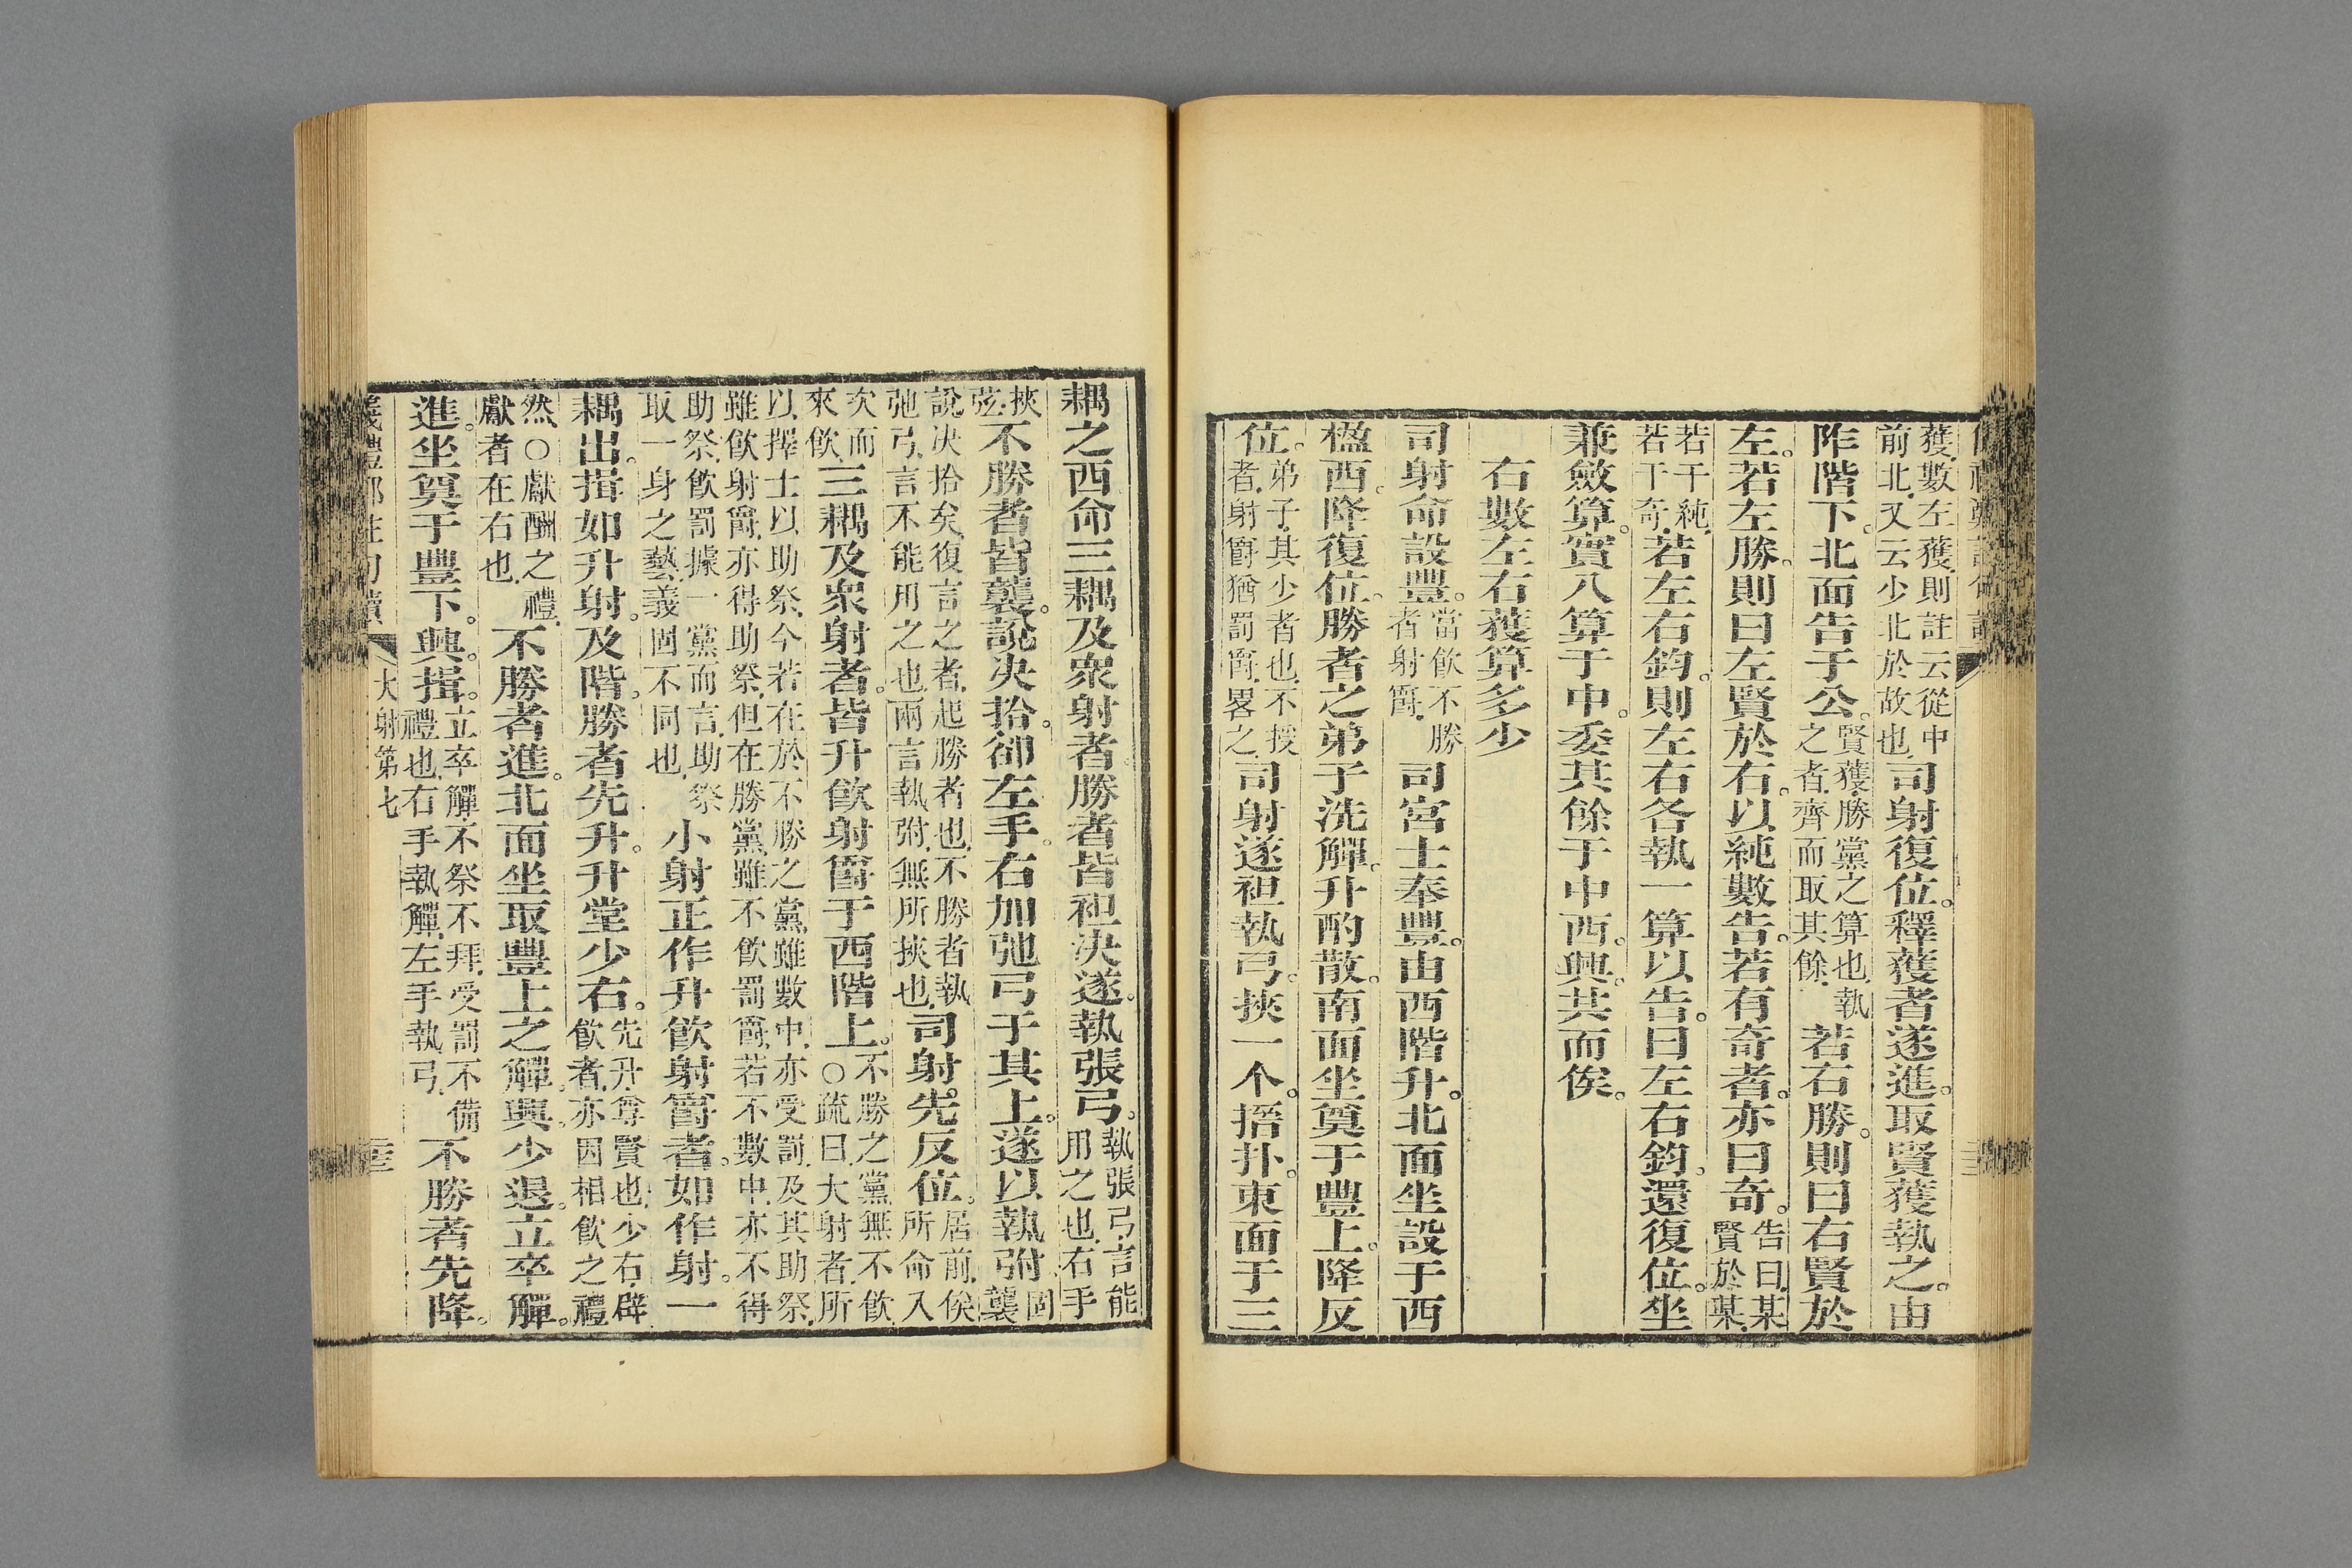 獲數左獲則註云從中前北又云少北於故也司射復位。釋獲者遂進。取賢獲執之。由
阼階下。北面告于公。賢獲勝黨之算也執之者齊而取其餘若右勝。則曰右賢於
左。若左勝。則曰左賢於右。以純數告。若有奇者。亦曰奇。告曰某賢於某
若干純若干奇若左右鈞。則左右各執一算以告。曰左右鈞。還復位。坐
兼斂算。實八算于中。委其餘于中西。興。共而俟。
右數左右獲算多少
司射命設豐。當飲不勝者射爵司宮士奉豐。由西階升。北面坐設于西
楹西。降復位。勝者之弟子洗觶。升酌散。南面坐奠于豐上。降反
位。弟子其少者也不授者射爵猶罰爵畧之司射遂袒執弓。挾一个。搢扑。東面于三
耦之西命三耦及衆射者。勝者皆袒決遂。執張弓。執張弓言能用之也右手
挾弦不勝者皆襲。說決拾。卻左手。右加弛弓于其上。遂以執弣固襲
說決拾矣復言之者起勝者也不勝者執弛弓言不能用之也兩言執弣無所挾也司射。先反位。居前俟所命入
次而來飲三耦及衆射者。皆升飲射爵于西階上。不勝之黨無不飲○疏曰大射者所
以擇士以助祭今若在於不勝之黨雖數中亦受罰及其助祭雖飲射爵亦得助祭但在勝黨雖不飲罰爵若不數中亦不得
助祭飲罰據一黨而言助祭取一身之藝義固不同也小射正作升飲射爵者。如作射。一
耦出。揖如升射。及階。勝者先升。升堂少右。先升尊賢也少右辟飲者亦因相飲之禮
然○獻酬之禮獻者在右也不勝者進。北面坐取豐上之觶。興。少退。立卒觶。
進。坐奠于豐下。興。揖。立卒觶不祭不拜受罰不備禮也右手執觶左手執弓不勝者先降。
大射第七